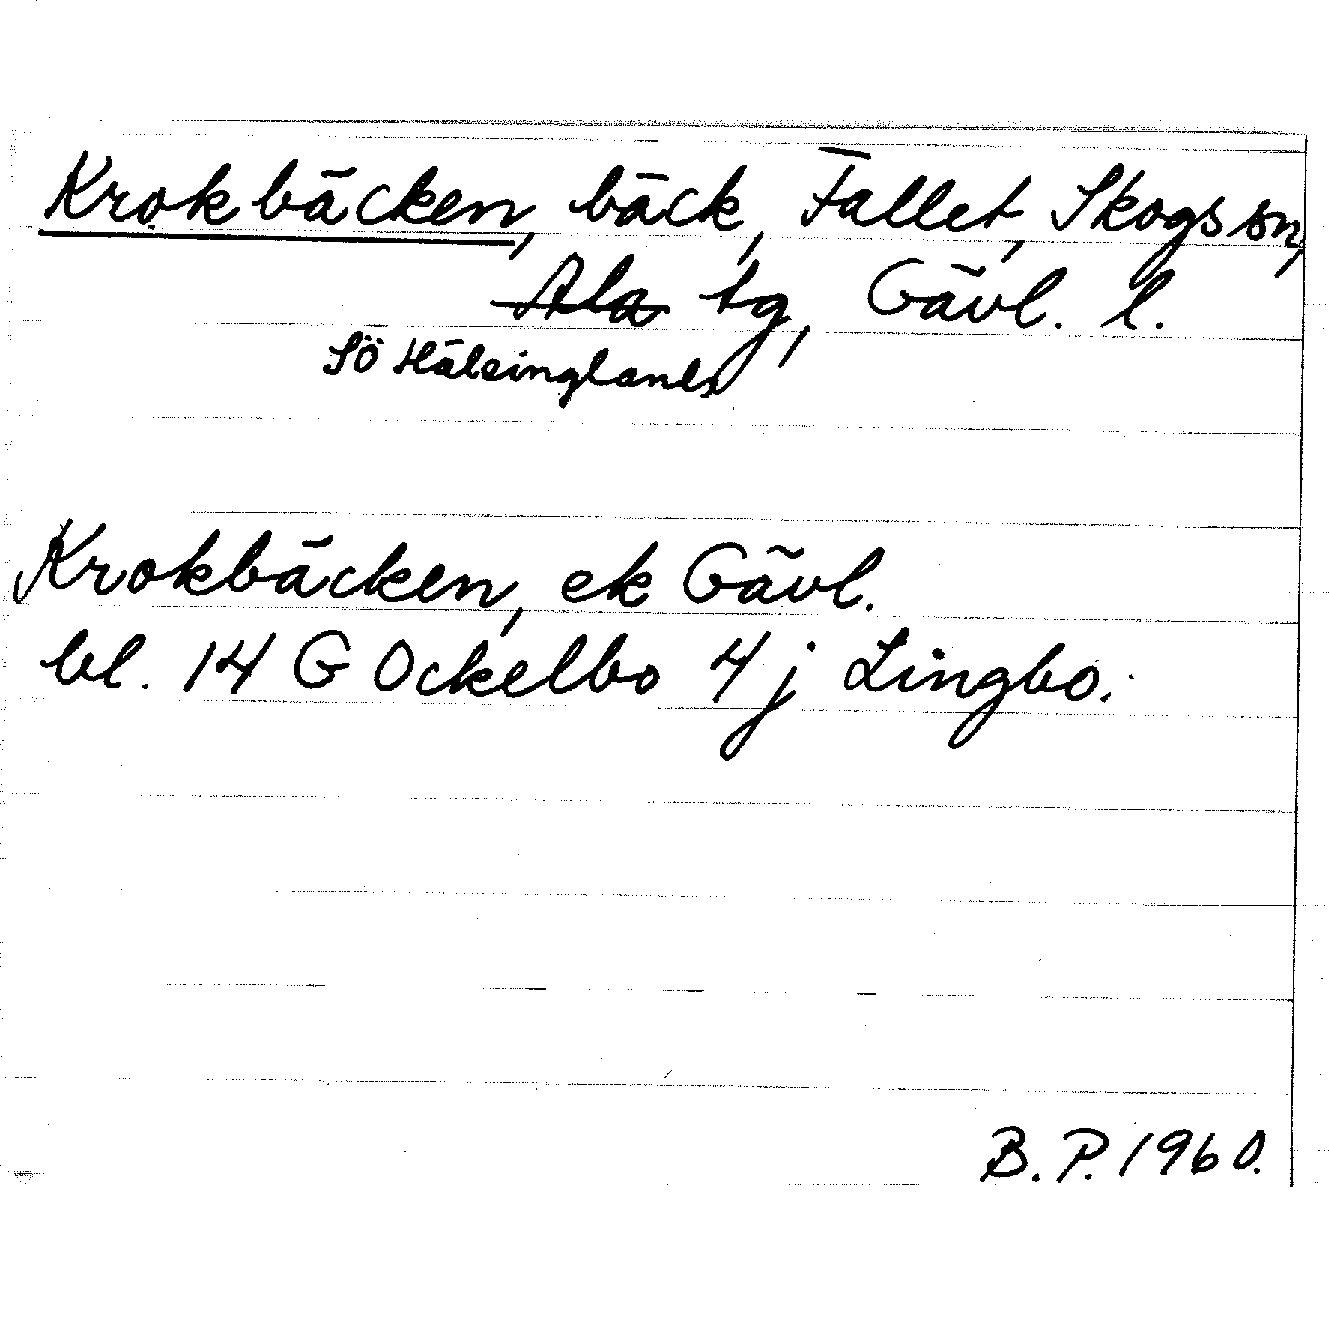 Krokbäcken, bäck, Fallet, Skogs sn,
Ala tg, Gävl. l.
Sö Hälsinglands
Krokbäcken, ek Gävl.
bl. 14 G Ockelbo 4 j Lingbo.
B. P. 1960.